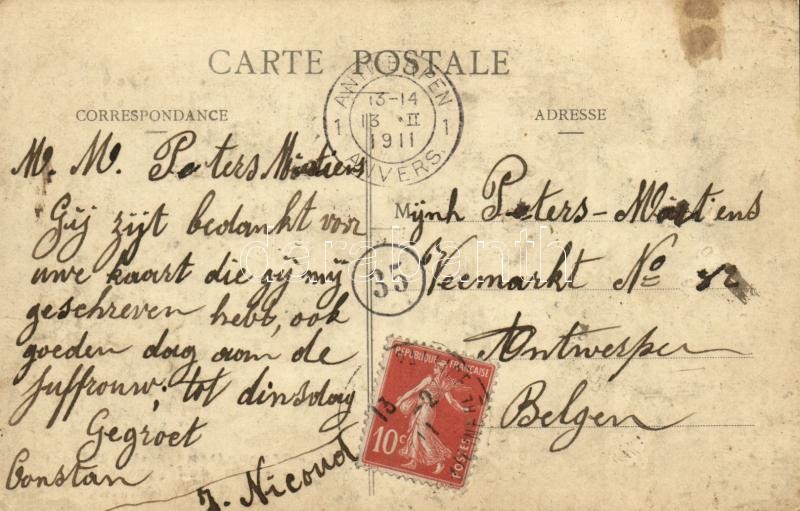 CARTE POSTALE
ANTWERPEN
1 13-14 1
13 II
1911
ANVERS
CORRESPONDANCE
M. M. Peters Martiens
Gij zijt bedankt voor
uwe kaart die gij mij
geschreven hebt, ook
goeden dag aan de
Juffrouw, tot dinsdag
Gegroet
Constan
J. Nicoud
35
ADRESSE
Mijnh Peters-Martiens
Veemarkt No
Antwerpen
Belgen
REPUBLIQUE FRANÇAISE
10c
POSTES
13 -2
11
darabanth